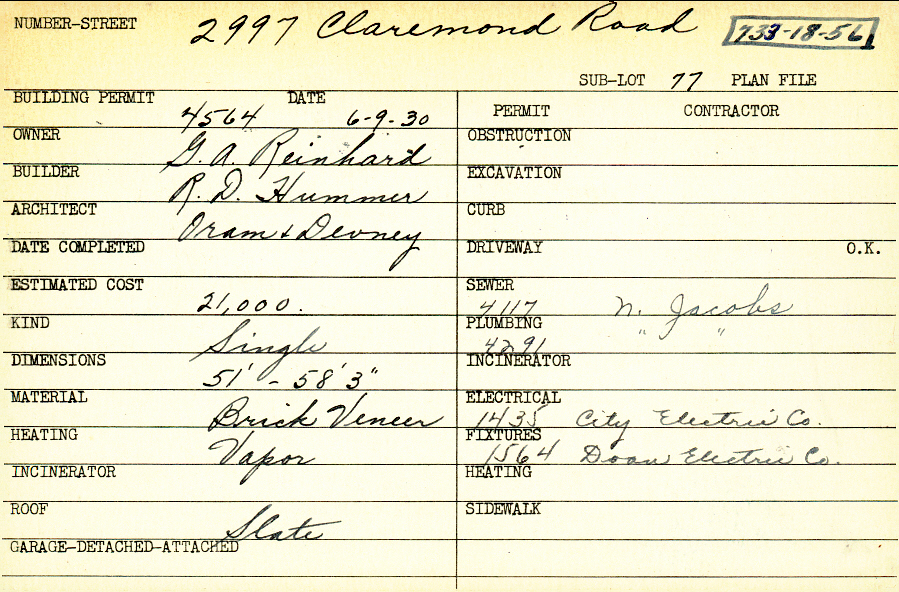 NUMBER-STREET 2997 Claremond Road 733-18-56
SUB-LOT 77 PLAN FILE
BUILDING PERMIT 4564 DATE 6-9-30
PERMIT CONTRACTOR
OWNER G. A. Reinhard
OBSTRUCTION
BUILDER R. D. Hummer
EXCAVATION
ARCHITECT Oram & Devney
CURB
DATE COMPLETED
DRIVEWAY O.K.
ESTIMATED COST 21,000.
SEWER 4117 N. Jacobs
KIND Single
PLUMBING 4291 " "
DIMENSIONS 51' - 58' 3"
INCINERATOR
MATERIAL Brick Veneer
ELECTRICAL 1435 City Electric Co.
HEATING Vapor
FIXTURES 1564 Doan Electric Co.
INCINERATOR
HEATING
ROOF Slate
SIDEWALK
GARAGE-DETACHED-ATTACHED